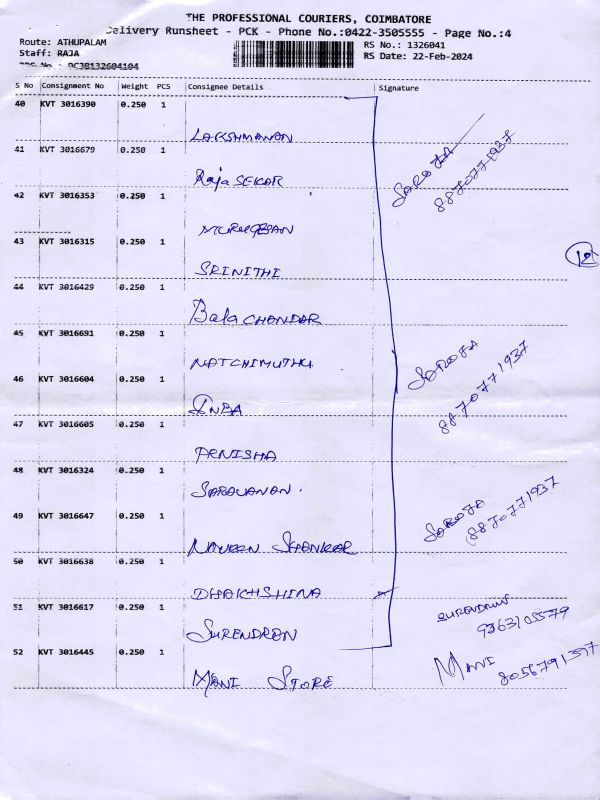 THE PROFESSIONAL COURIERS, COIMBATORE
Delivery Runsheet - PCK - Phone No.:0422-3505555 - Page No.:4
Route: ATHUPALAM
RS No.: 1326041
Staff: RAJA
RS Date: 22-Feb-2024
S No Consignment No Weight PCS Consignee Details Signature
40 KVT 3016390 0.250 1
LAKSHMANAN
41 KVT 3016679 0.250 1
Raja SEKAR
SAROJA
8870771937
42 KVT 3016353 0.250 1
MURUGESAN
43 KVT 3016315 0.250 1
12
SRINITHI
44 KVT 3016429 0.250 1
Bala CHANDAR
45 KVT 3016691 0.250 1
NATCHIMUTHU
SAROJA
8870771937
46 KVT 3016604 0.250 1
INBA
47 KVT 3016605 0.250 1
PRNISHA
48 KVT 3016324 0.250 1
SARAVANAN.
SAROJA
8870771937
49 KVT 3016647 0.250 1
NAVEEN SHANKAR
50 KVT 3016638 0.250 1
DHAKHSHINA
51 KVT 3016617 0.250 1
SURENDRAN
SURENDRUN
9363105579
52 KVT 3016445 0.250 1
MANI STORE
MANI
8056791397